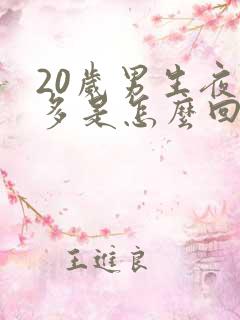 20歲男生夜
多是怎麼回
王進良